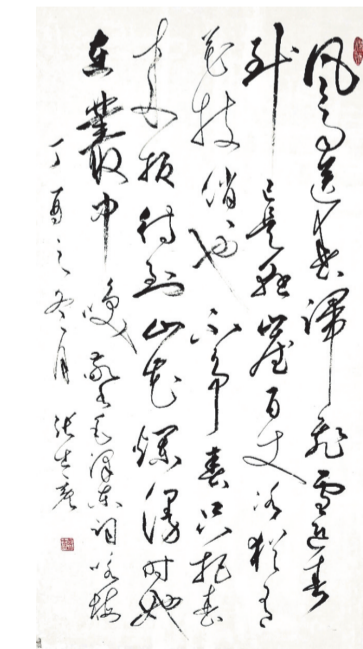 风雨送春歸飛雪迎春
到已是悬崖百丈冰犹有
花枝俏也不争春只把春
来报待到山花烂漫时她
在叢中咲 毛泽东词咏梅
丁酉之冬月 张